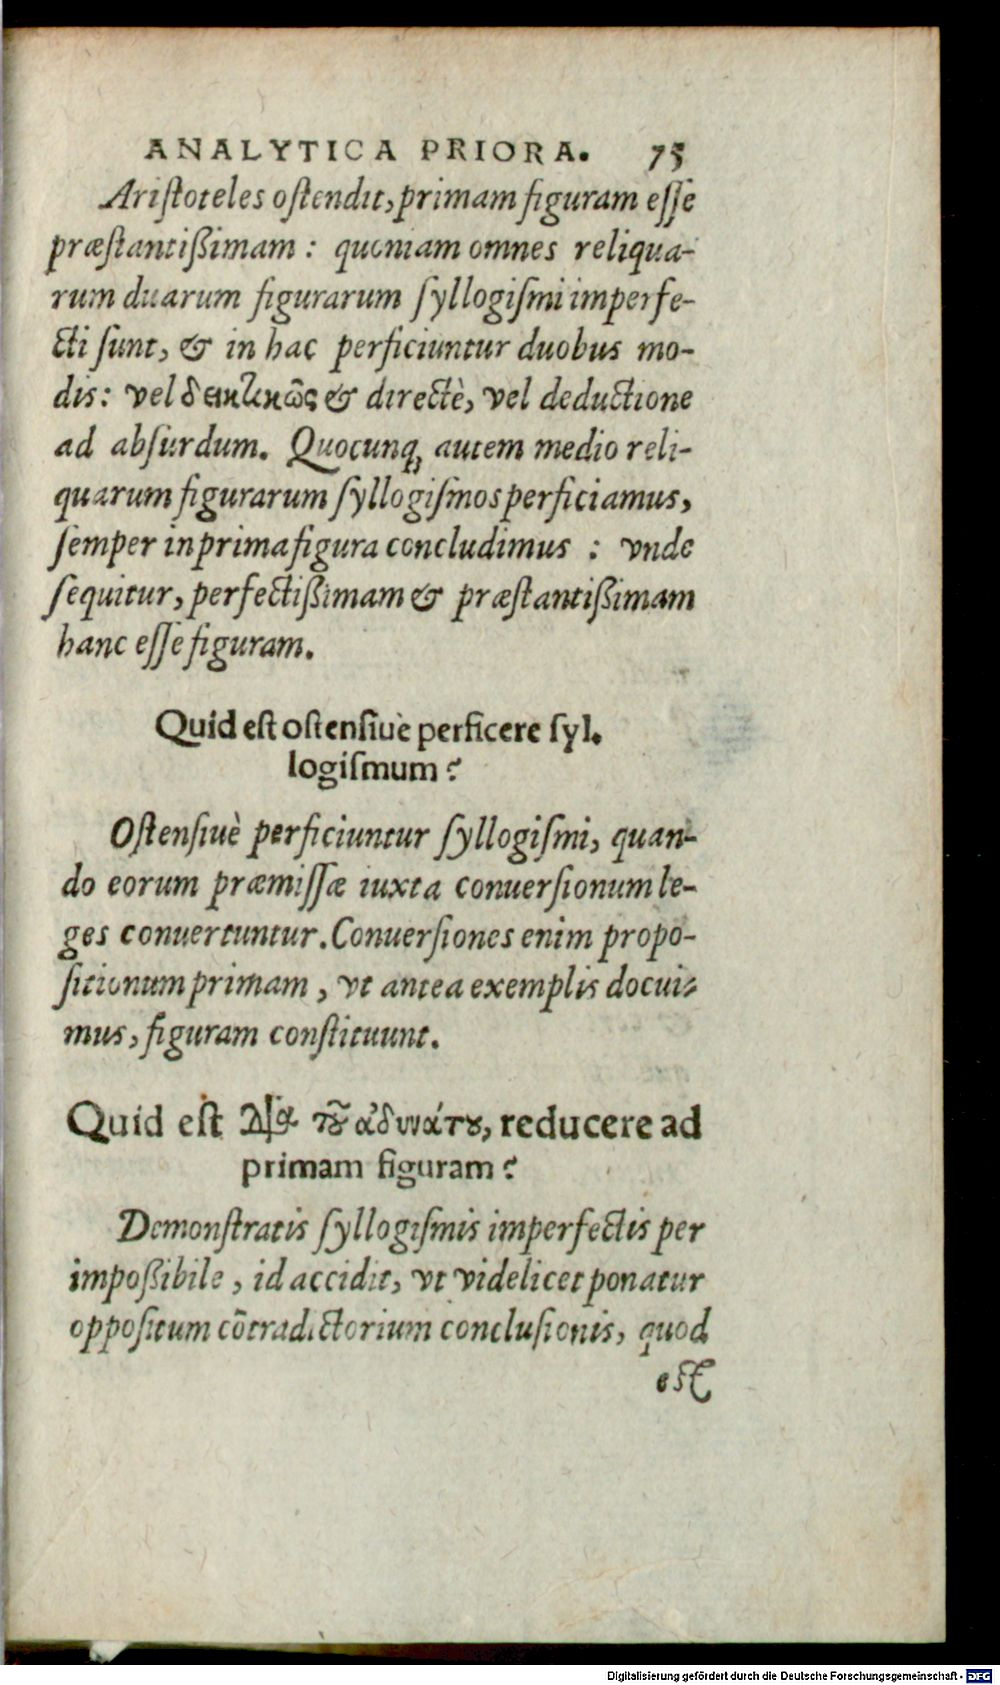 ANALYTICA PRIORA. 75
Ariſtoteles oſtendit, primam figuram eſſe
præſtantißimam: quoniam omnes reliqua-
rum duarum figurarum ſyllogiſmi imperfe-
cti ſunt, & in hac perficiuntur duobus mo-
dis: vel δεικτικῶς & directè, vel deductione
ad abſurdum. Quocunq; autem medio reli-
quarum figurarum ſyllogiſmos perficiamus,
ſemper in prima figura concludimus: vnde
ſequitur, perfectißimam & præſtantißimam
hanc eſſe figuram.
Quid eſt oſtenſiuè perficere ſyl-
logiſmum?
Oſtenſiuè perficiuntur ſyllogiſmi, quan-
do eorum præmiſſæ iuxta conuerſionum le-
ges conuertuntur. Conuerſiones enim propo-
ſitionum primam, vt antea exemplis docui-
mus, figuram conſtituunt.
Quid eſt διὰ τοῦ ἀδυνάτου, reducere ad
primam figuram?
Demonſtratis ſyllogiſmis imperfectis per
impoßibile, id accidit, vt videlicet ponatur
oppoſitum cõtradictorium concluſionis, quod
eſt
Digitalisierung gefördert durch die Deutsche Forschungsgemeinschaft - DFG